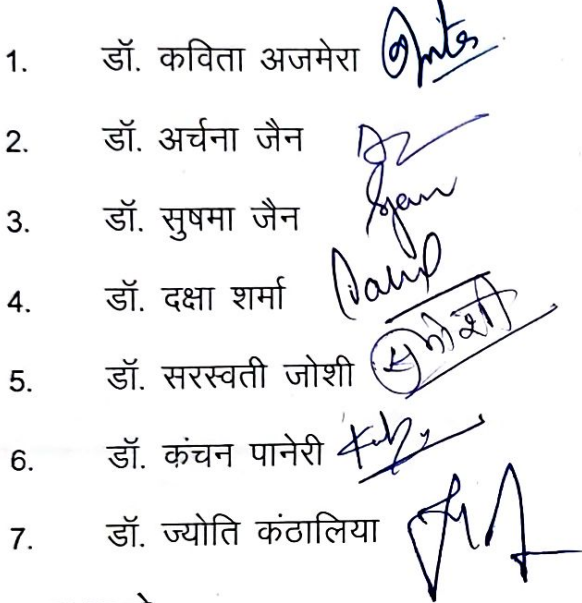 1. डॉ. कविता अजमेरा
2. डॉ. अर्चना जैन
3. डॉ. सुषमा जैन
4. डॉ. दक्षा शर्मा
5. डॉ. सरस्वती जोशी
6. डॉ. कंचन पानेरी
7. डॉ. ज्योति कंठालिया